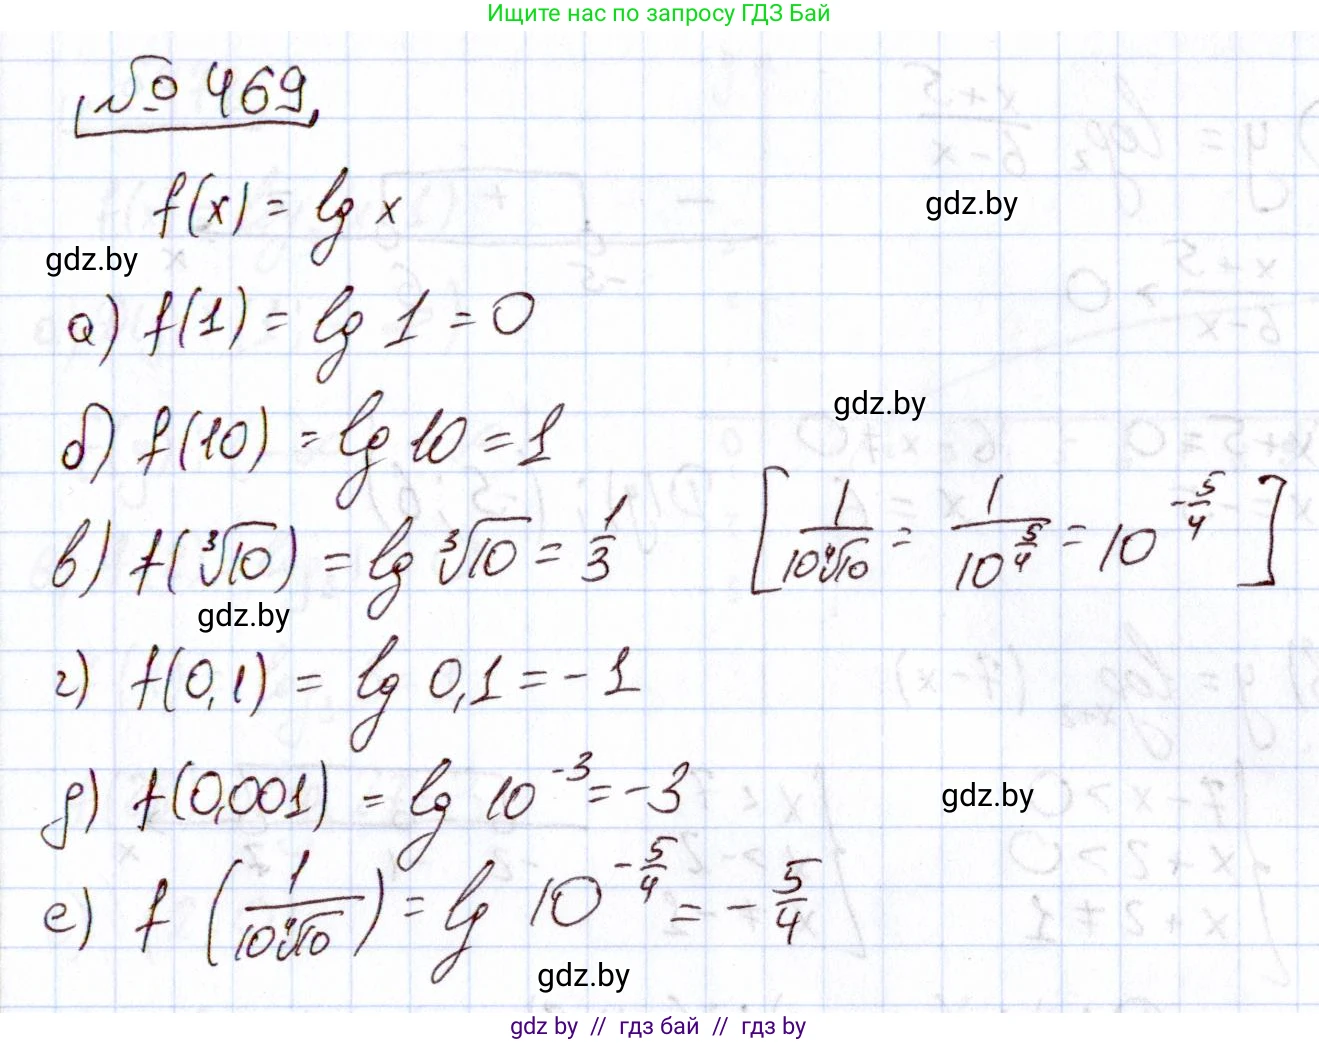 Ищите нас по запросу ГДЗ Бай
№ 469
f(x) = lg x
gdz.by
gdz.by
а) f(1) = lg 1 = 0
gdz.by
б) f(10) = lg 10 = 1
в) f(∛10) = lg ∛10 = 1/3 [1/(10∜10) = 1/10^(5/4) = 10^(-5/4)]
gdz.by
г) f(0,1) = lg 0,1 = -1
д) f(0,001) = lg 10^(-3) = -3
gdz.by
е) f(1/(10∜10)) = lg 10^(-5/4) = -5/4
gdz.by
gdz by // гдз бай // гдз by